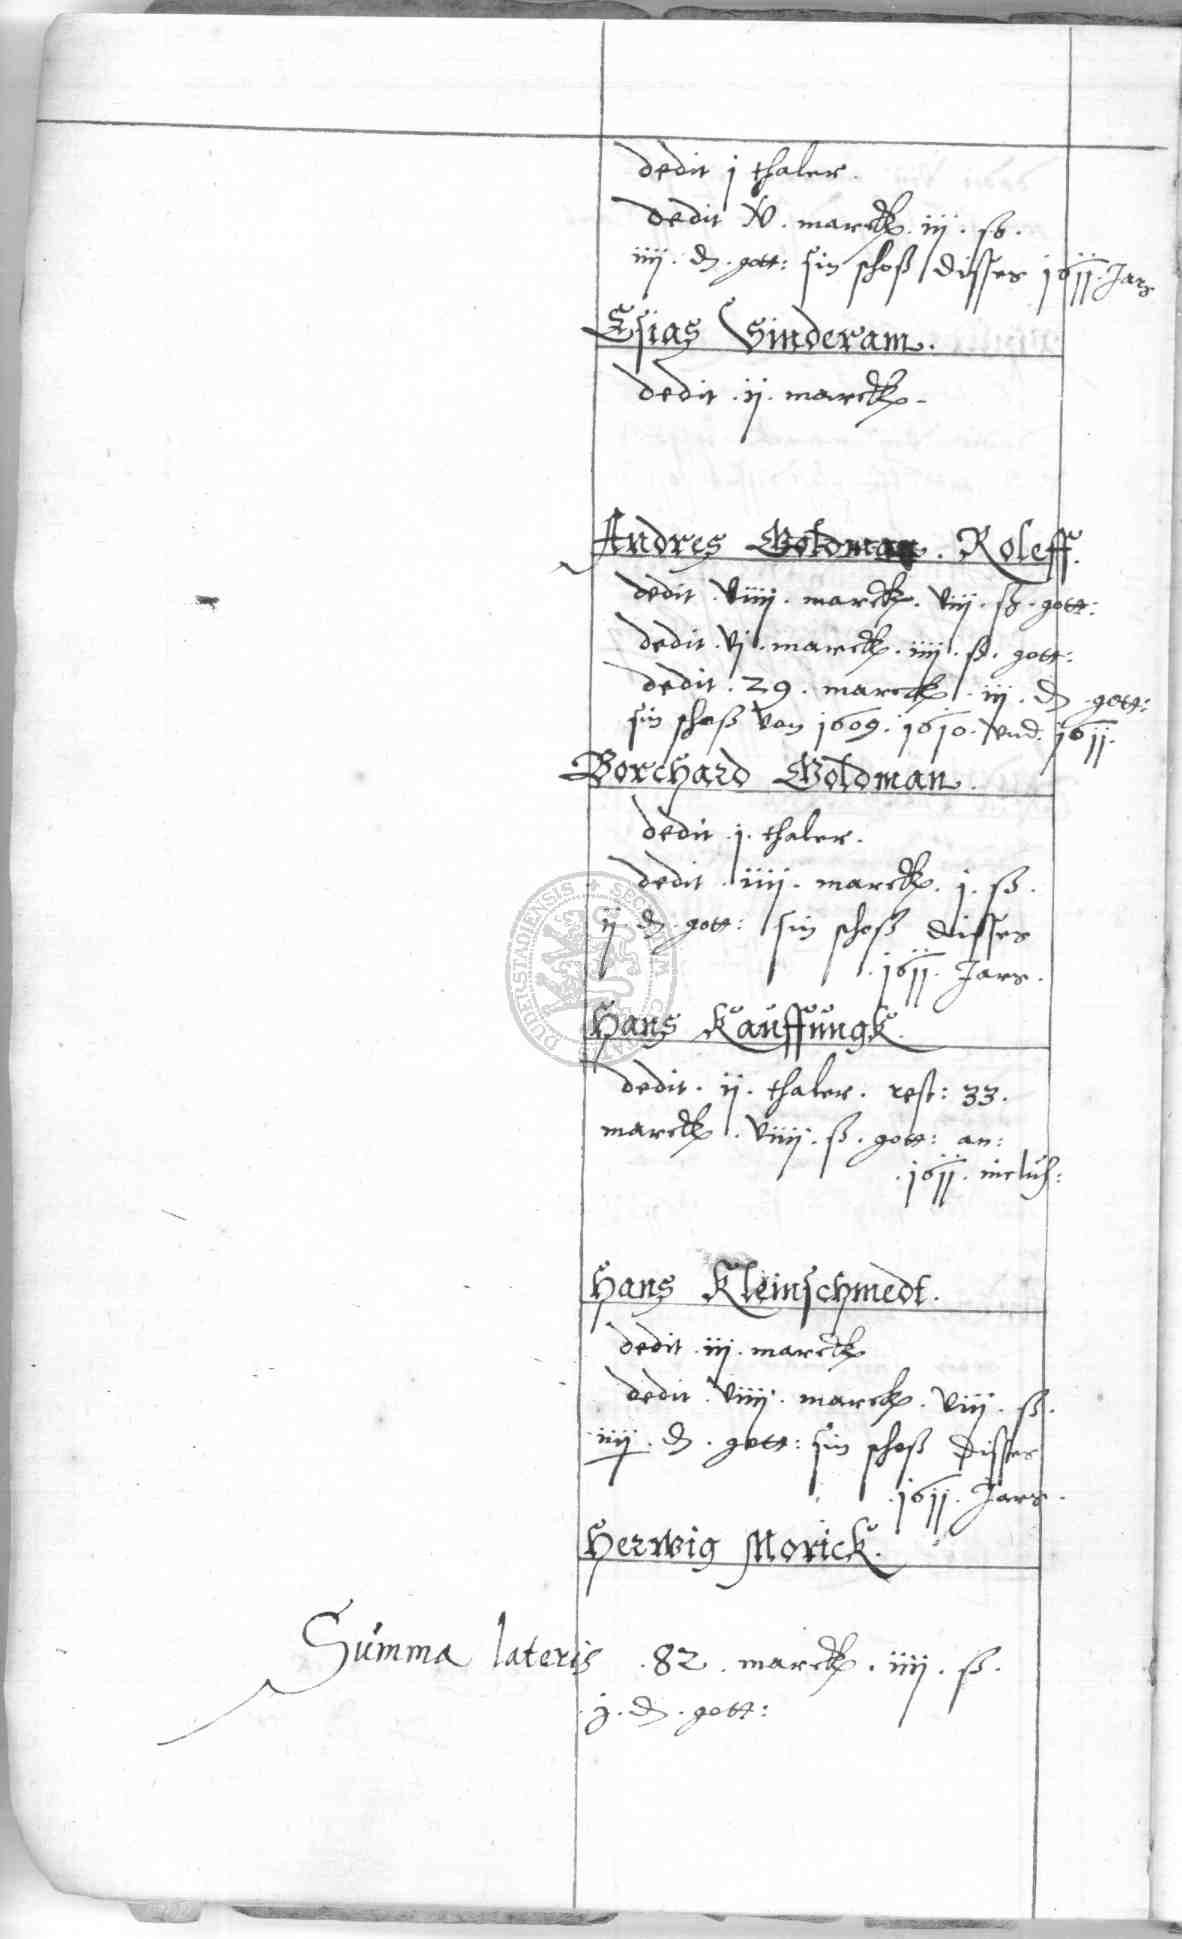 dedit j thaler.
dedit V. marck. iij. ß.
iiij. d. gott: sin schoß disses 1611. Jars
Esias Sinderam.
dedit .ij. marck.
Andres Goldman. Roleff.
dedit .viiij. marck. viij. ß. gott:
dedit .vj. marck. iiij. ß. gott:
dedit .29. marck. iij. d. gott:
sin schoß von 1609. 1610. vnd. 1611.
Borchard Goldman.
dedit .j. thaler.
dedit .iiij. marck. j. ß.
ij. d. gott: sin schoß disses
.1611. Jars.
Hans Kauffungk.
dedit. ij. thaler. rest: 33.
marck. viiij. ß. gott: an:
.1611. inclus:
Hans Kleinschmedt.
dedit .iij. marck
dedit .viiij. marck. viij. ß.
iiij. d. gott: sin schoß disses
.1611. Jars.
Herwig Morick.
Summa lateris .82. marck. iiij. ß.
j. d. gott:
DUDERSTADIENSIS SECRETUM CIVITATIS